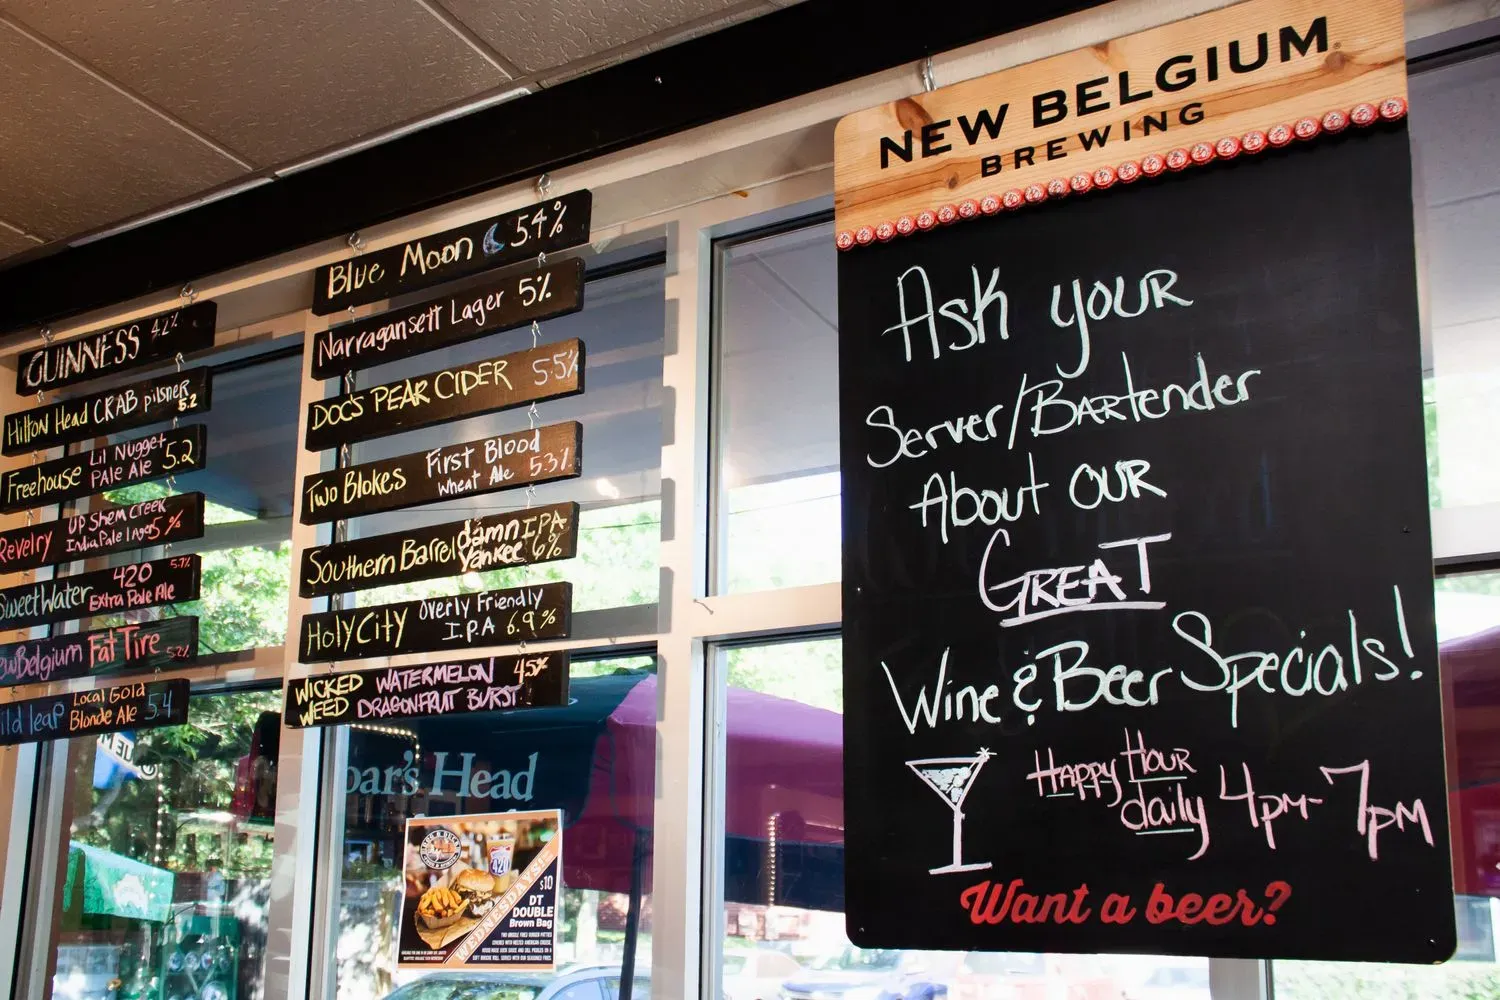 GUINNESS 4.2%
Hilton Head CRAB pilsner 5.2
Freehouse Lil Nugget
PALE Ale 5.2
Revelry UP Shem Creek
India Pale lager 5%
SweetWater 420 5.7%
Extra Pale Ale
ewBelgium Fat Tire 5.2%
ild leaf Local Gold
Blonde Ale 5.4
Blue Moon 5.4%
Narragansett Lager 5%
DOC'S PEAR CIDER 5.5%
Two Blokes First Blood
Wheat Ale 5.3%
Southern Barrel damn IPA
Yankee 6%
Holy City Overly Friendly
I.P.A 6.9%
WICKED WATERMELON 4.5%
WEED DRAGONFRUIT BURST
oar's Head
420
WEDNESDAYS!
$10
DT
DOUBLE
Brown Bag
NEW BELGIUM
BREWING
Ask your
Server/Bartender
About our
GREAT
Wine & Beer Specials!
Happy Hour
daily 4pm-7pm
Want a beer?